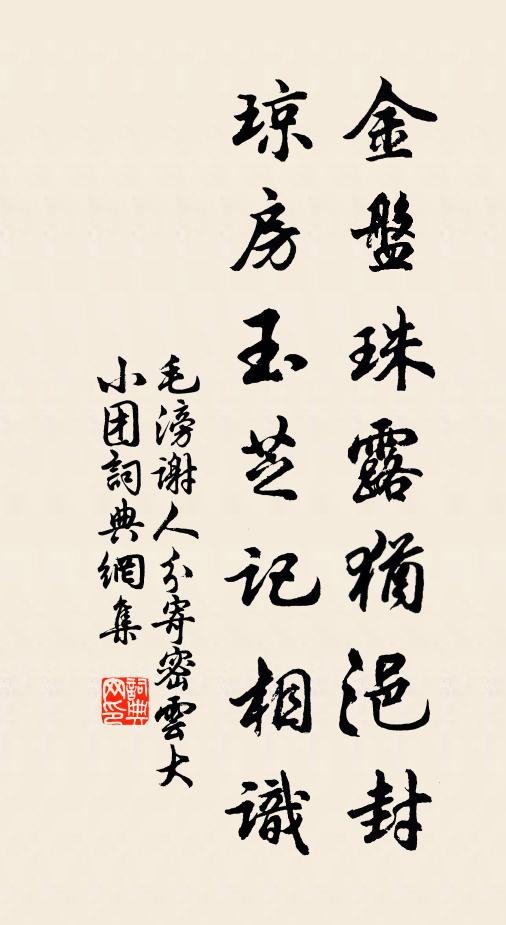 金盤珠露猶浥封
琼房玉芝记相識
毛滂謝人分寄密雲大
小团詞典網集
詞典网印